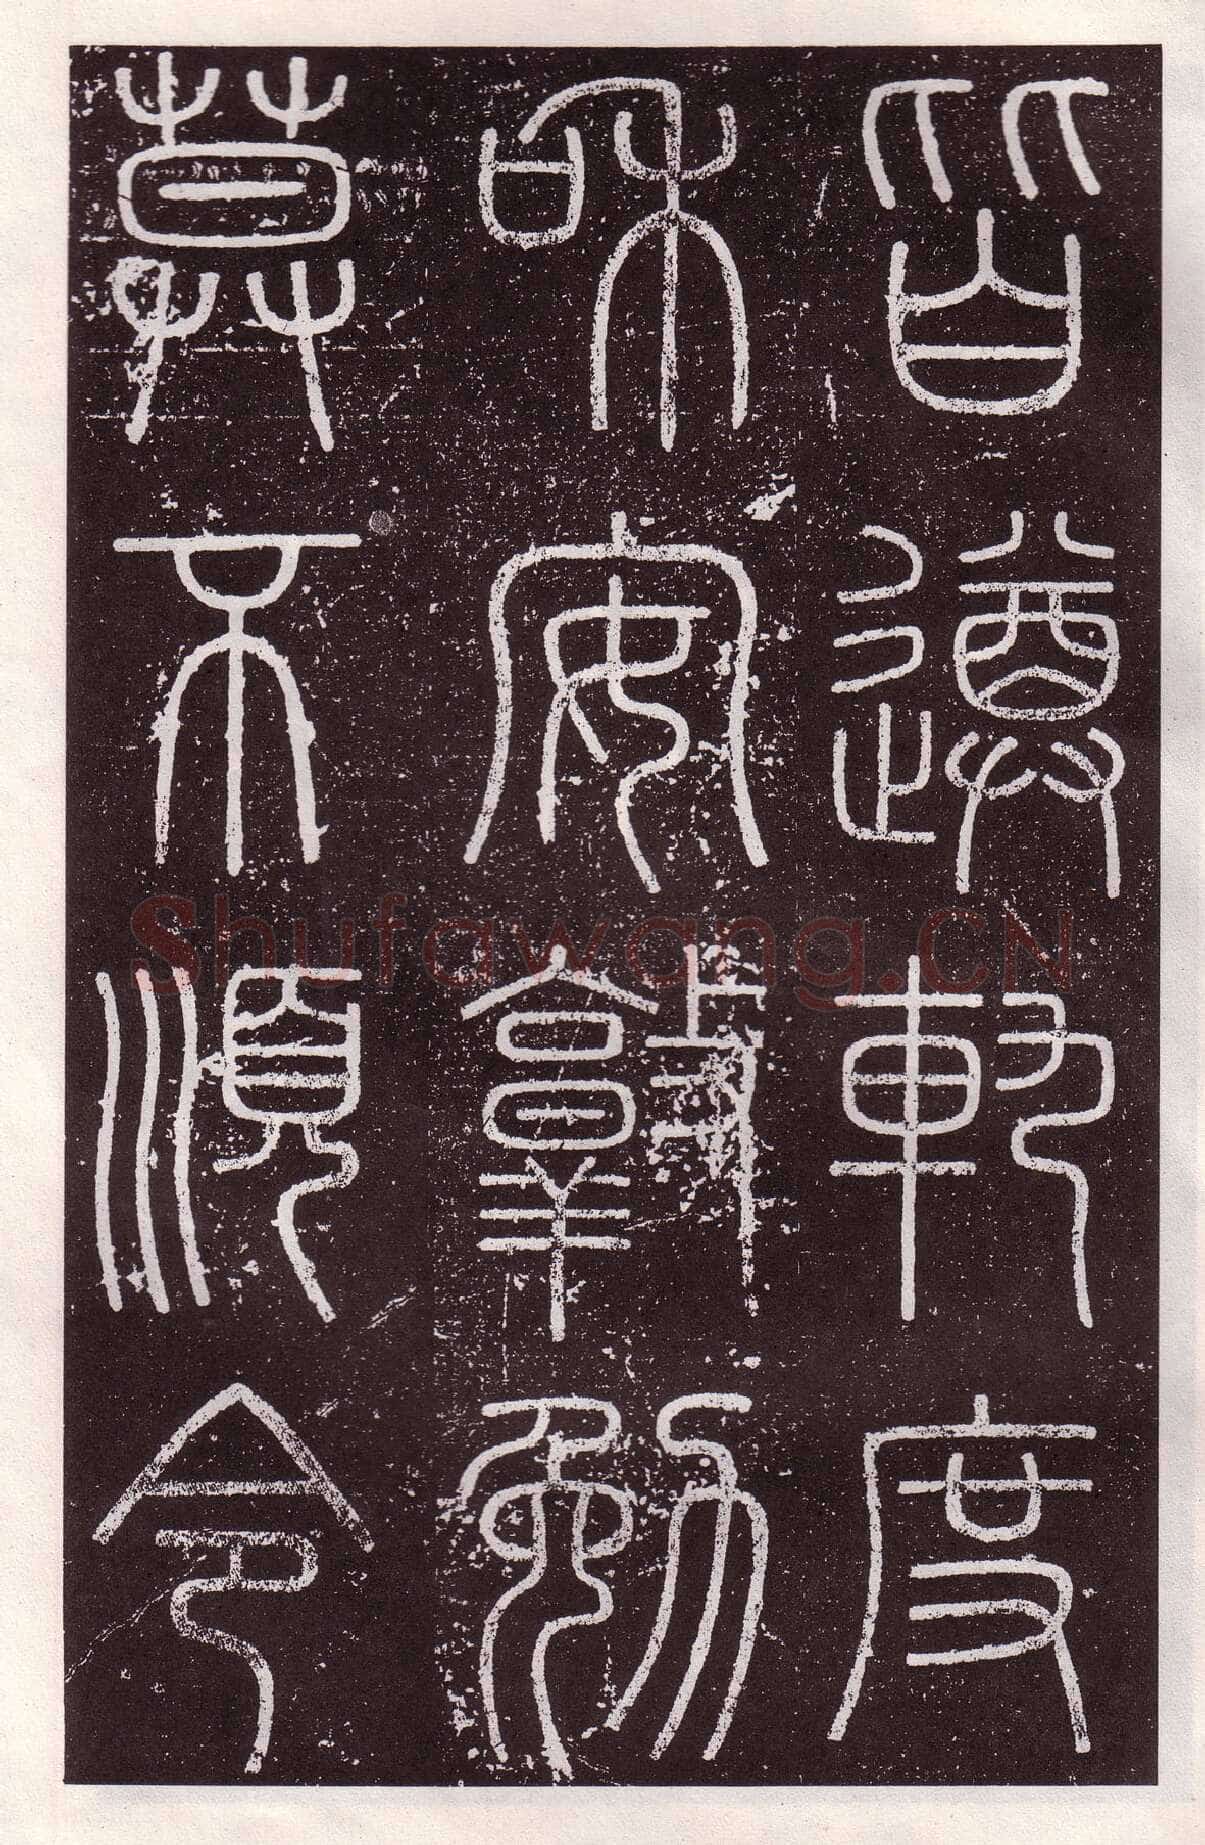 皆遵軌度
和安敦勉
莫不順令
Shufawang.CN